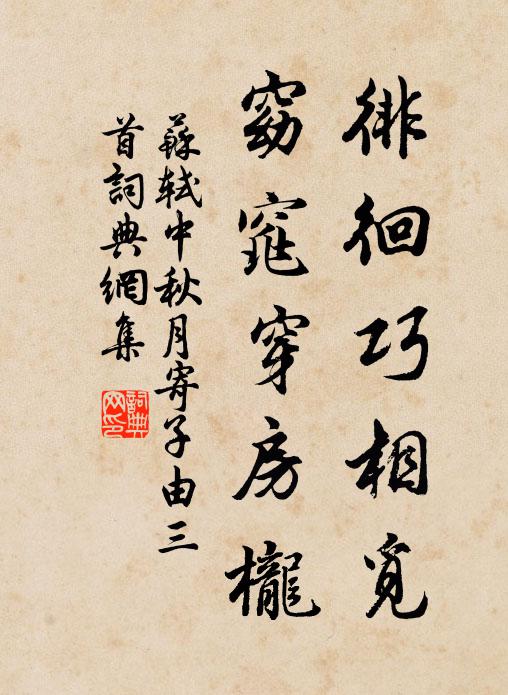 徘徊巧相覓
窈窕穿房櫳
蘇軾中秋月寄子由三
首詞典網集
詞典
网印